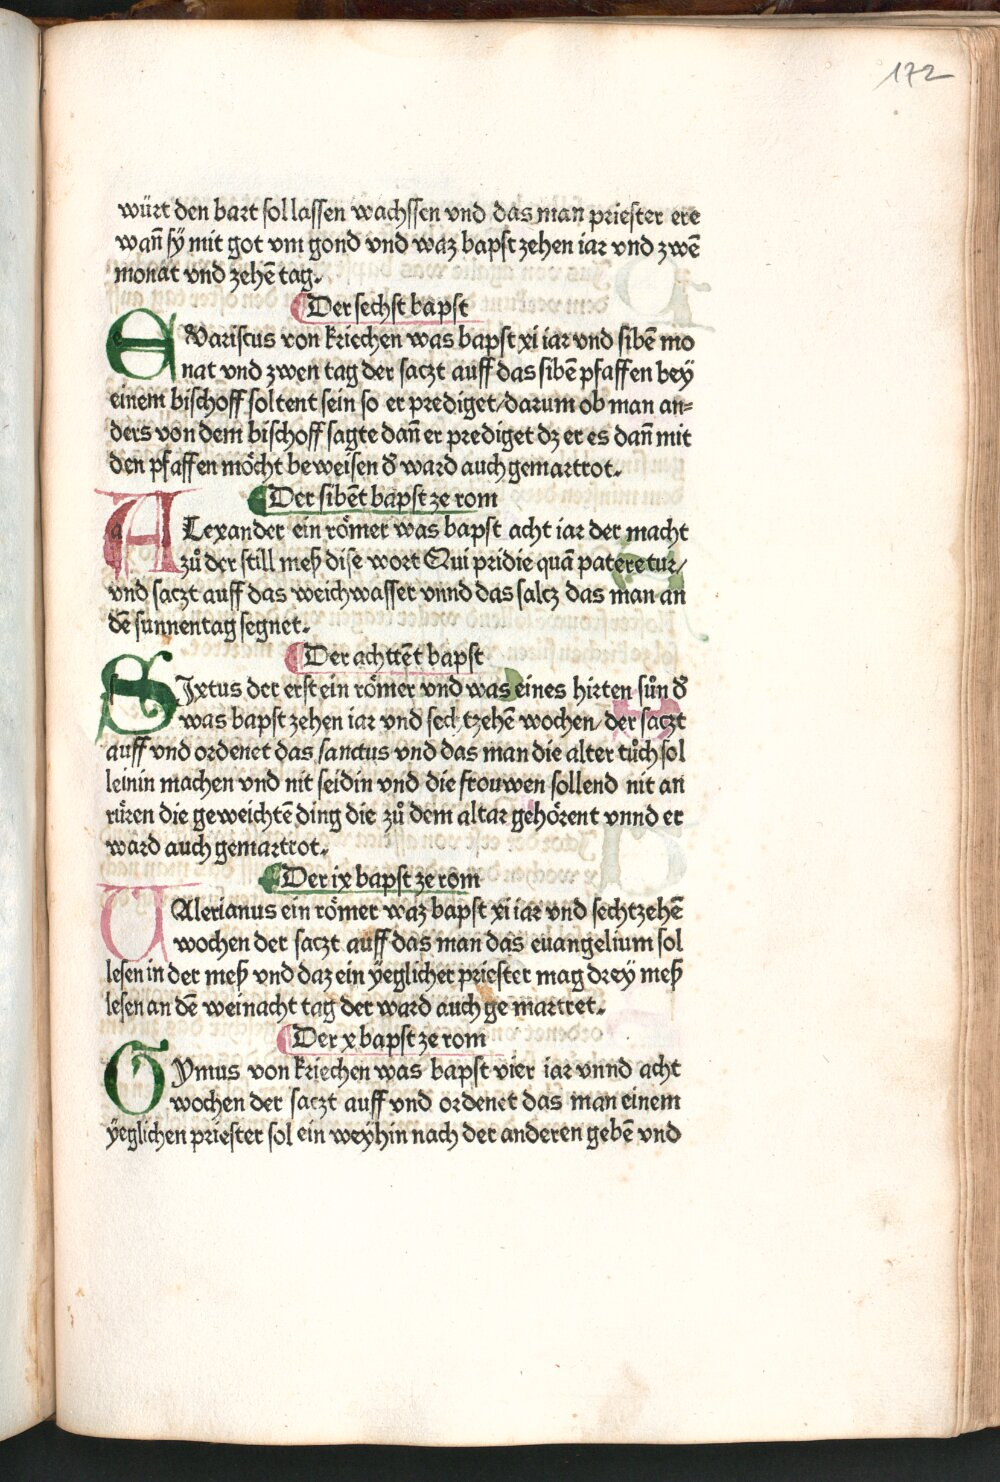 172
würt den bart sol lassen wachssen vnd das man priester ere
wañ sy mit got vm gond vnd waz bapst zehen iar vnd zwē
monat vnd zehē tag.
Der sechst bapst
EVariscus von kriechen was bapst xi iar vnd sibē mo
nat vnd zwen tag der saczt auff das sibē pfaffen bey
einem bischoff soltent sein so er prediget/darum ob man an⸗
ders von dem bischoff sagte dañ er prediget dz er es dañ mit
den pfaffen möcht beweisen d᷑ ward auch gemartrot.
Der sibēt bapst ze rom
ALexander ein römer was bapst acht iar der macht
zů der still meß dise wort Qui pridie quā pateretur/
vnd saczt auff das weichwasser vnnd das salcz das man an
dē sunnentag segnet.
Der achttēt bapst
SIxtus der erst ein römer vnd was eines hirten sůn d᷑
was bapst zehen iar vnd sechtzehē wochen/der saczt
auff vnd ordenet das sanctus vnd das man die alter tůch sol
leinin machen vnd nit seidin vnd die frouwen sollend nit an
rüren die geweichtē ding die zů dem altar gehörent vnnd er
ward auch gemartrot.
Der ix bapst ze rom
VAlerianus ein römer waz bapst xi iar vnd sechtzehē
wochen der saczt auff das man das euangelium sol
lesen in der meß vnd daz ein yeglicher priester mag drey meß
lesen an dē weinacht tag der ward auch ge martret.
Der x bapst ze rom
GYmus von kriechen was bapst vier iar vnnd acht
wochen der saczt auff vnd ordenet das man einem
yeglichen priester sol ein weyhin nach der anderen gebē vnd